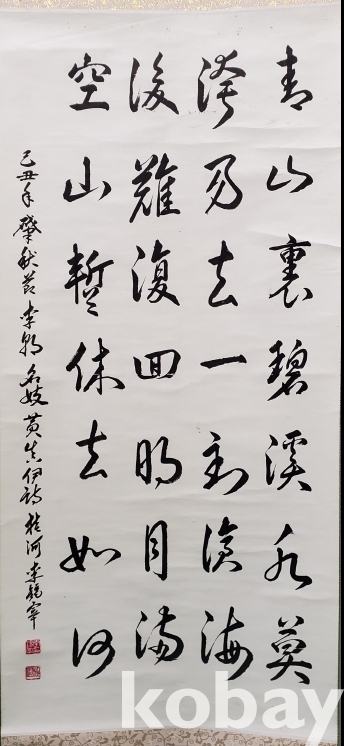 青山裏碧溪水莫
誇易去一到滄海
後難復回明月滿
空山暫休去如何
己丑年肇秋 李朝名妓黃真伊詩 河李
kobay